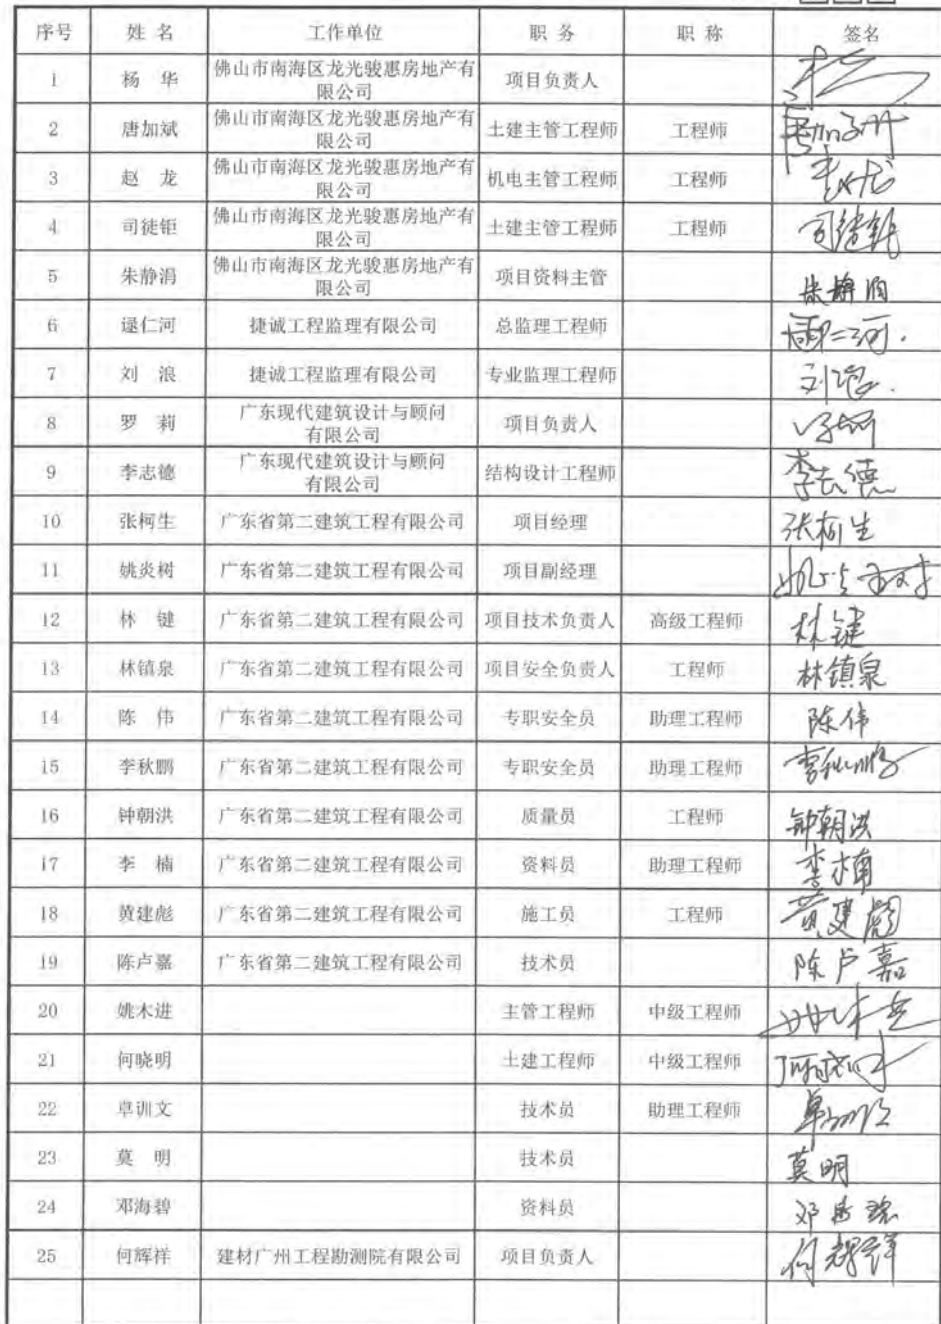 序号 姓 名 工作单位 职 务 职 称 签名
1 杨 华 佛山市南海区龙光骏惠房地产有
限公司 项目负责人
2 唐加斌 佛山市南海区龙光骏惠房地产有
限公司 土建主管工程师 工程师
3 赵 龙 佛山市南海区龙光骏惠房地产有
限公司 机电主管工程师 工程师
4 司徒钜 佛山市南海区龙光骏惠房地产有
限公司 土建主管工程师 工程师
5 朱静涓 佛山市南海区龙光骏惠房地产有
限公司 项目资料主管
6 逯仁河 捷诚工程监理有限公司 总监理工程师
7 刘 浪 捷诚工程监理有限公司 专业监理工程师
8 罗 莉 广东现代建筑设计与顾问
有限公司 项目负责人
9 李志德 广东现代建筑设计与顾问
有限公司 结构设计工程师 李志德
10 张柯生 广东省第二建筑工程有限公司 项目经理 张柯生
11 姚炎树 广东省第二建筑工程有限公司 项目副经理
12 林 键 广东省第二建筑工程有限公司 项目技术负责人 高级工程师 林键
13 林镇泉 广东省第二建筑工程有限公司 项目安全负责人 工程师 林镇泉
14 陈 伟 广东省第二建筑工程有限公司 专职安全员 助理工程师 陈伟
15 李秋鹏 广东省第二建筑工程有限公司 专职安全员 助理工程师
16 钟朝洪 广东省第二建筑工程有限公司 质量员 工程师 钟朝洪
17 李 楠 广东省第二建筑工程有限公司 资料员 助理工程师 李楠
18 黄建彪 广东省第二建筑工程有限公司 施工员 工程师 黄建彪
19 陈卢嘉 广东省第二建筑工程有限公司 技术员 陈卢嘉
20 姚木进 主管工程师 中级工程师
21 何晓明 土建工程师 中级工程师
22 卓训文 技术员 助理工程师
23 莫 明 技术员 莫明
24 邓海碧 资料员 邓海碧
25 何辉祥 建材广州工程勘测院有限公司 项目负责人 何辉祥